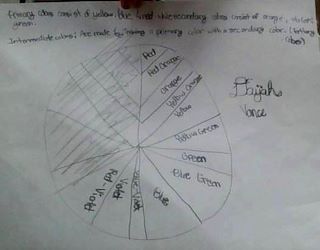 Primary colors consist of yellow, Blue & red while secondary colors consist of orange, violet &
green.
Intermediate colors: Are made by mixing a primary color with a secondary color. (Tertiary
Colors)
Red
Red Orange
Orange
Yellow Orange
Yellow
Yellow Green
Green
Blue Green
Blue
Violet
Red-Violet
Vance